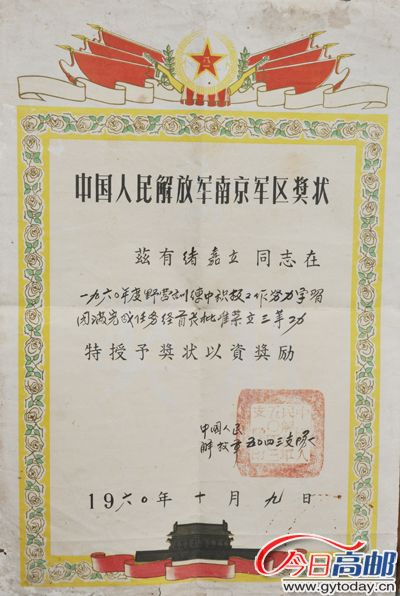 中国人民解放军南京军区奖状
兹有绪嘉立同志在
一九六〇年度野营训练中积极工作努力学习
圆满完成任务经首长批准荣立三等功
特授予奖状以資奖励
中国人民
解放军五〇四三支队
19六〇年十月九日
今日高邮
www.gytoday.cn